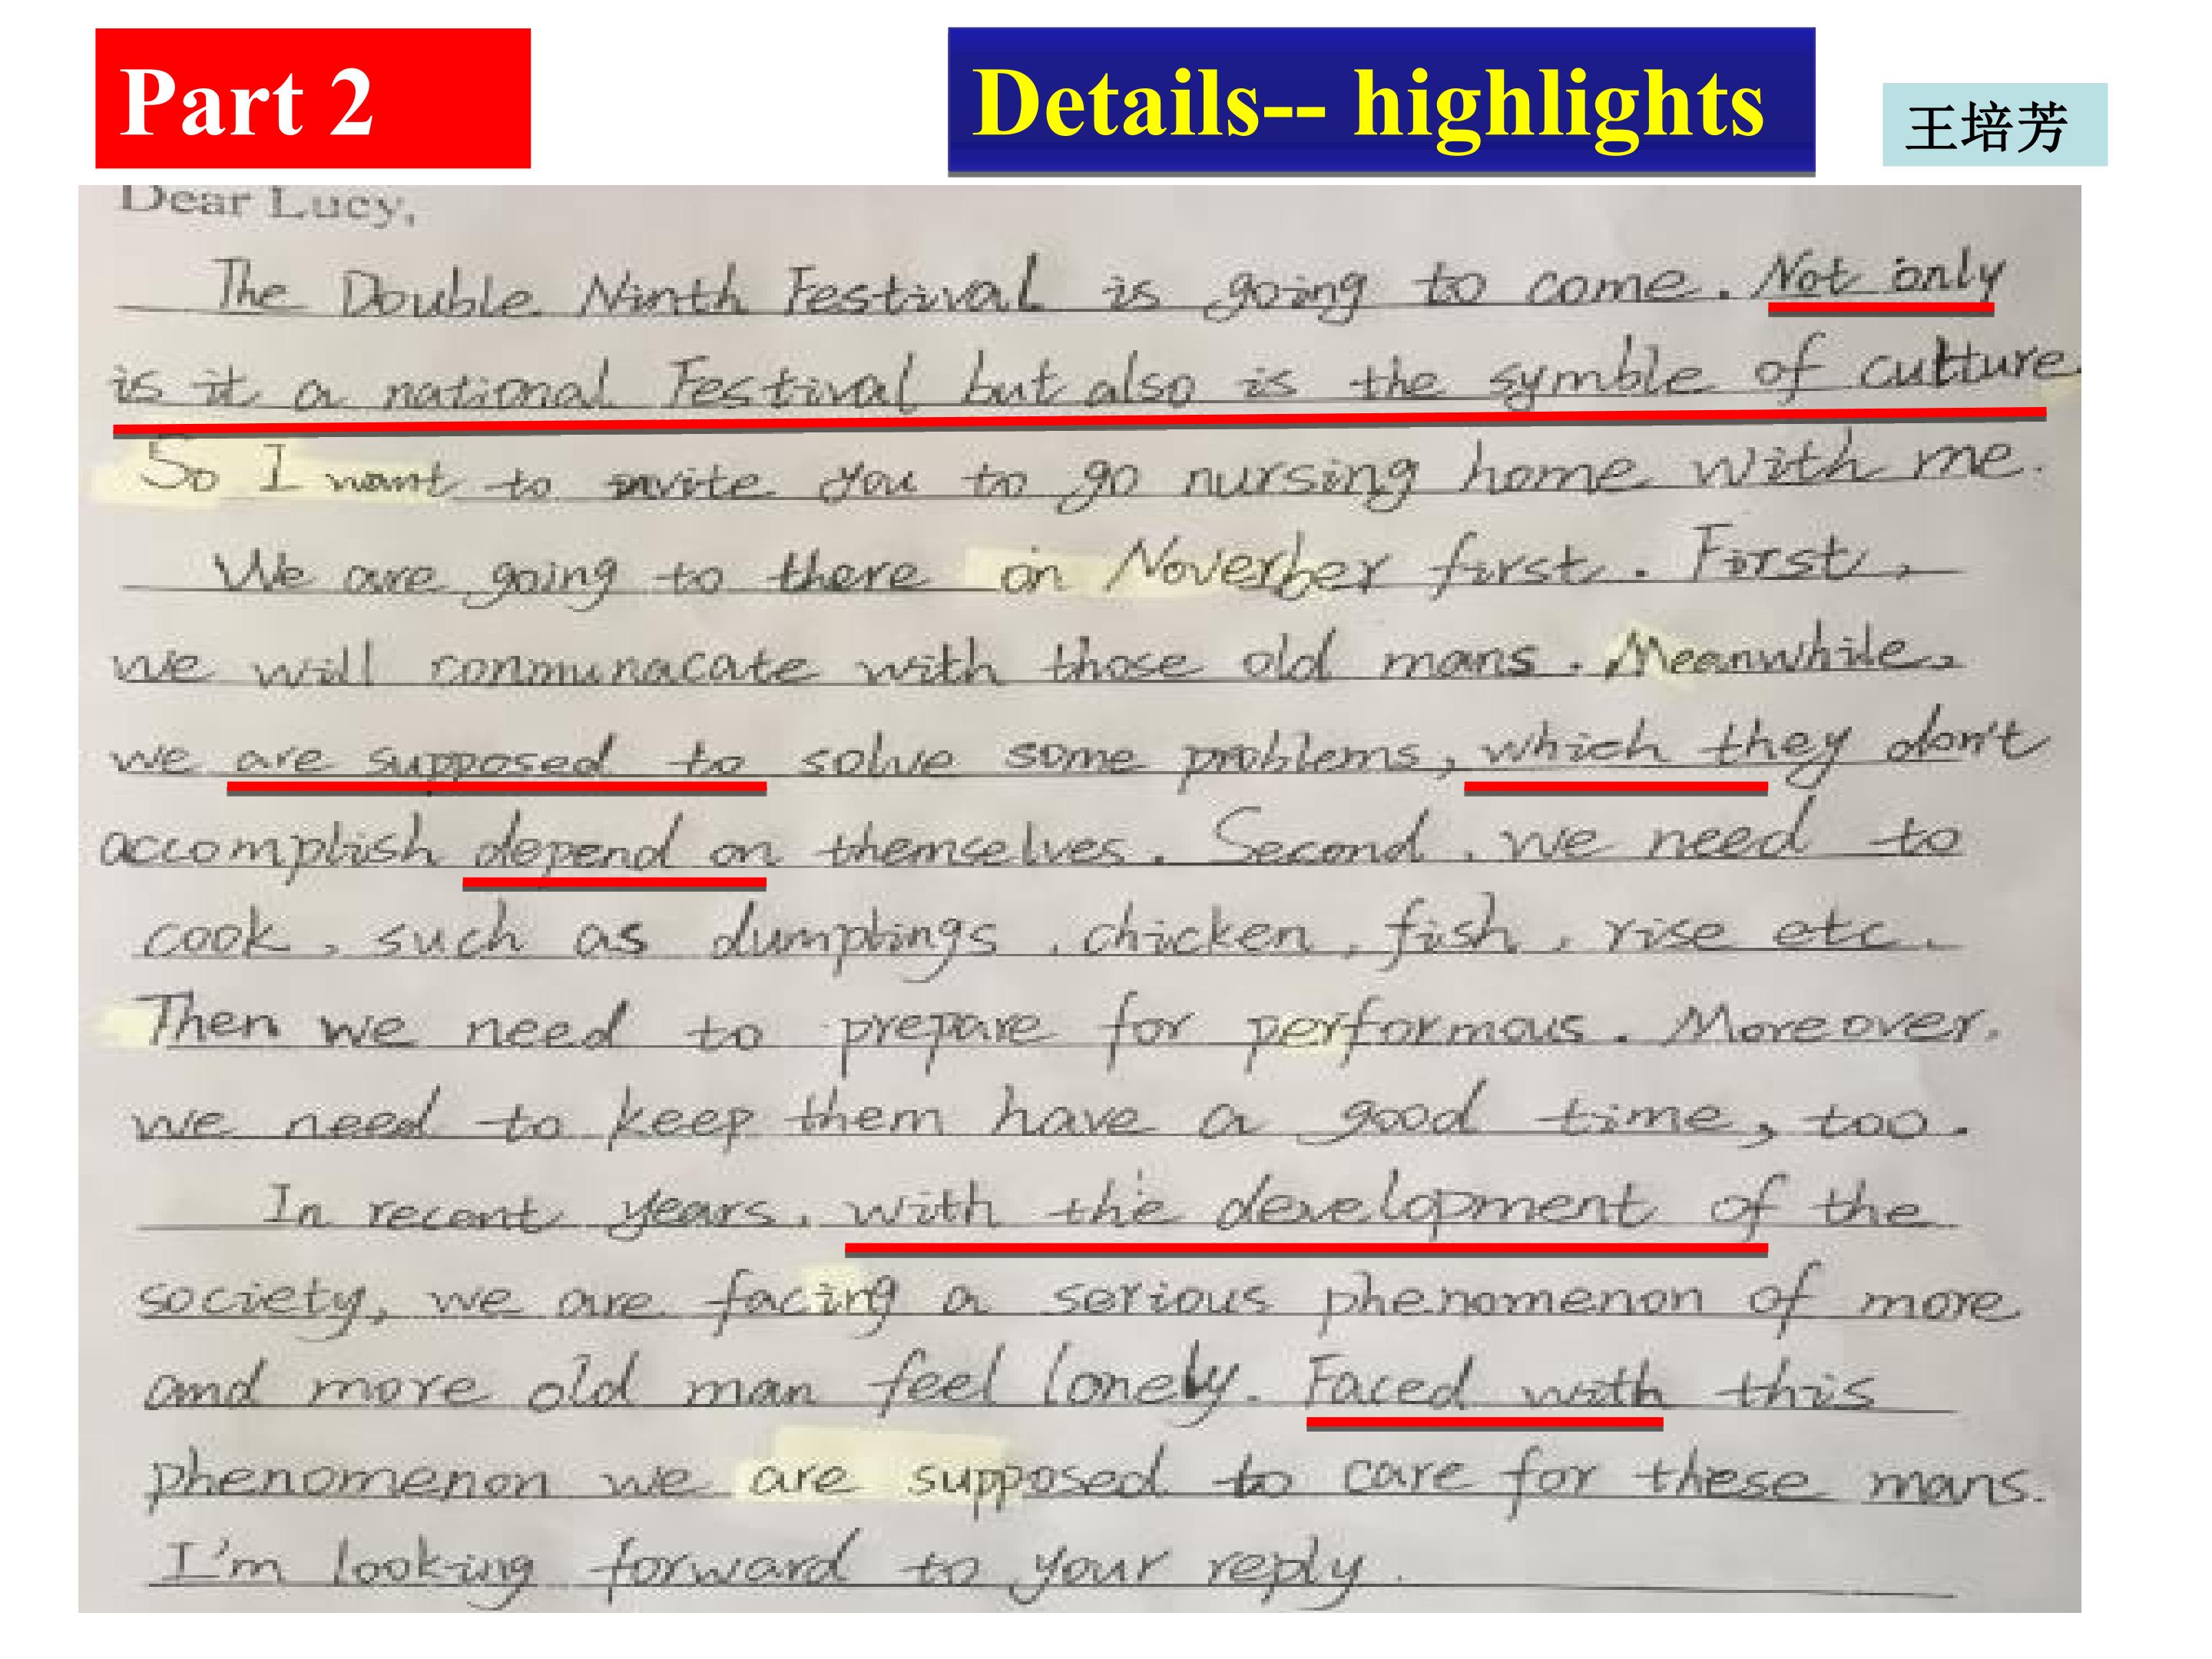 Part 2
Details-- highlights
王培芳
Dear Lucy,
The Double Ninth Festival is going to come. Not only
is it a national Festival but also is the symble of cultture
So I want to invite you to go nursing home with me.
We are going to there on Noverber first. First,
we will conmunacate with those old mans. Meanwhile,
we are supposed to solve some problems, which they don't
accomplish depend on themselves. Second, we need to
cook, such as dumplings, chicken, fish, rise etc.
Then we need to prepare for performous. Moreover,
we need to keep them have a good time, too.
In recent years, with the development of the
society, we are facing a serious phenomenon of more
and more old man feel lonely. Faced with this
phenomenon we are supposed to care for these mans.
I'm looking forward to your reply.